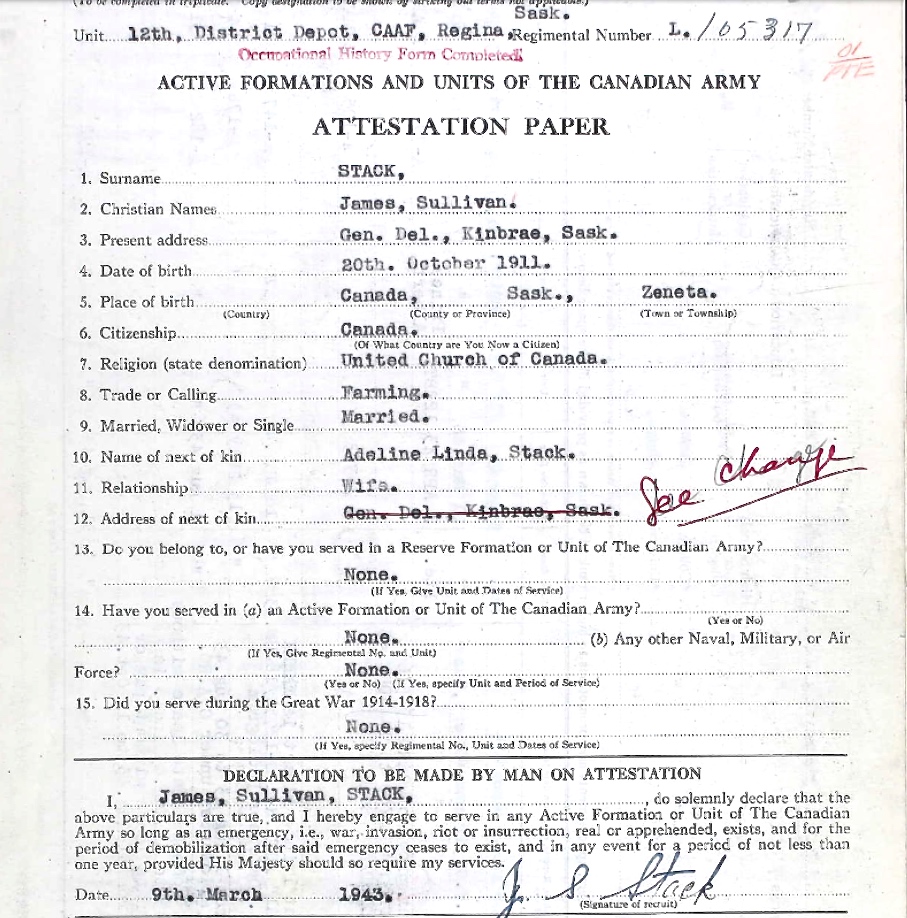 (To be completed in triplicate. Copy designation to be shown by striking out terms not applicable.)
Sask.
Unit 12th, District Depot, CAAF, Regina, Regimental Number L. 105317
Occupational History Form Completed
01
PTE
ACTIVE FORMATIONS AND UNITS OF THE CANADIAN ARMY
ATTESTATION PAPER
1. Surname STACK,
2. Christian Names James, Sullivan.
3. Present address Gen. Del., Kinbrae, Sask.
4. Date of birth 20th. October 1911.
5. Place of birth Canada, Sask., Zeneta.
(Country) (County or Province) (Town or Township)
6. Citizenship Canada.
(Of What Country are You Now a Citizen)
7. Religion (state denomination) United Church of Canada.
8. Trade or Calling Farming.
9. Married, Widower or Single Married.
10. Name of next of kin Adeline Linda, Stack.
11. Relationship Wife. See Change
12. Address of next of kin Gen. Del., Kinbrae, Sask.
13. Do you belong to, or have you served in a Reserve Formation or Unit of The Canadian Army?
None.
(If Yes, Give Unit and Dates of Service)
14. Have you served in (a) an Active Formation or Unit of The Canadian Army?
(Yes or No)
None. (b) Any other Naval, Military, or Air
(If Yes, Give Regimental No. and Unit)
Force? None.
(Yes or No) (If Yes, specify Unit and Period of Service)
15. Did you serve during the Great War 1914-1918?
None.
(If Yes, specify Regimental No., Unit and Dates of Service)
DECLARATION TO BE MADE BY MAN ON ATTESTATION
I, James, Sullivan, STACK, , do solemnly declare that the
above particulars are true, and I hereby engage to serve in any Active Formation or Unit of The Canadian
Army so long as an emergency, i.e., war, invasion, riot or insurrection, real or apprehended, exists, and for the
period of demobilization after said emergency ceases to exist, and in any event for a period of not less than
one year, provided His Majesty should so require my services.
Date 9th. March 1943. J. S Stack
(Signature of recruit)